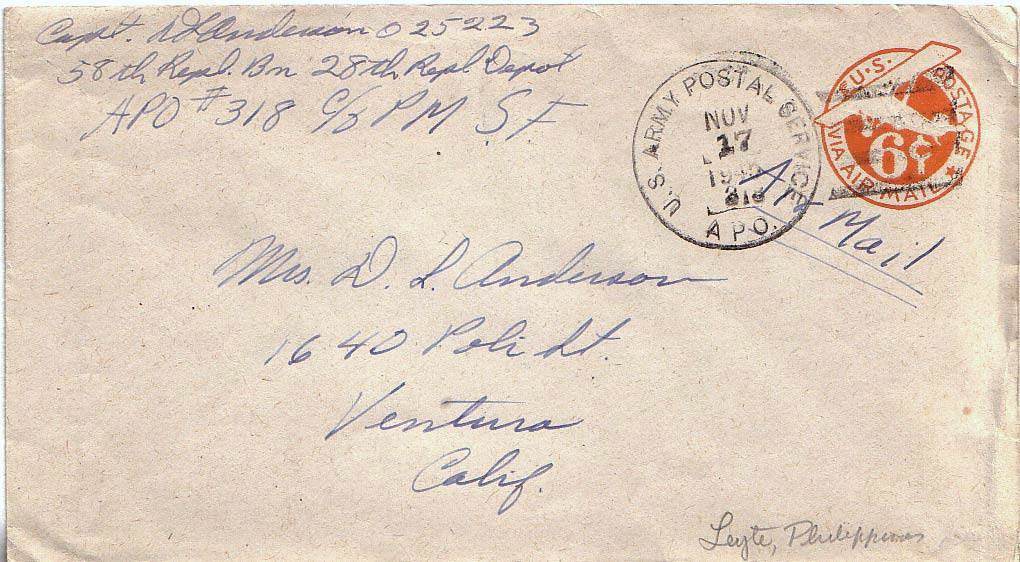 Capt. DL Anderson 025223
58th Repl. Bn 28th Repl Depot
APO #318 c/o PM SF
U.S. ARMY POSTAL SERVICE
NOV
17
A.P.O.
U.S. POSTAGE
6¢
VIA AIR MAIL
Air Mail
Mrs. D. L. Anderson
1640 Poli St.
Ventura
Calif.
Leyte, Philippines